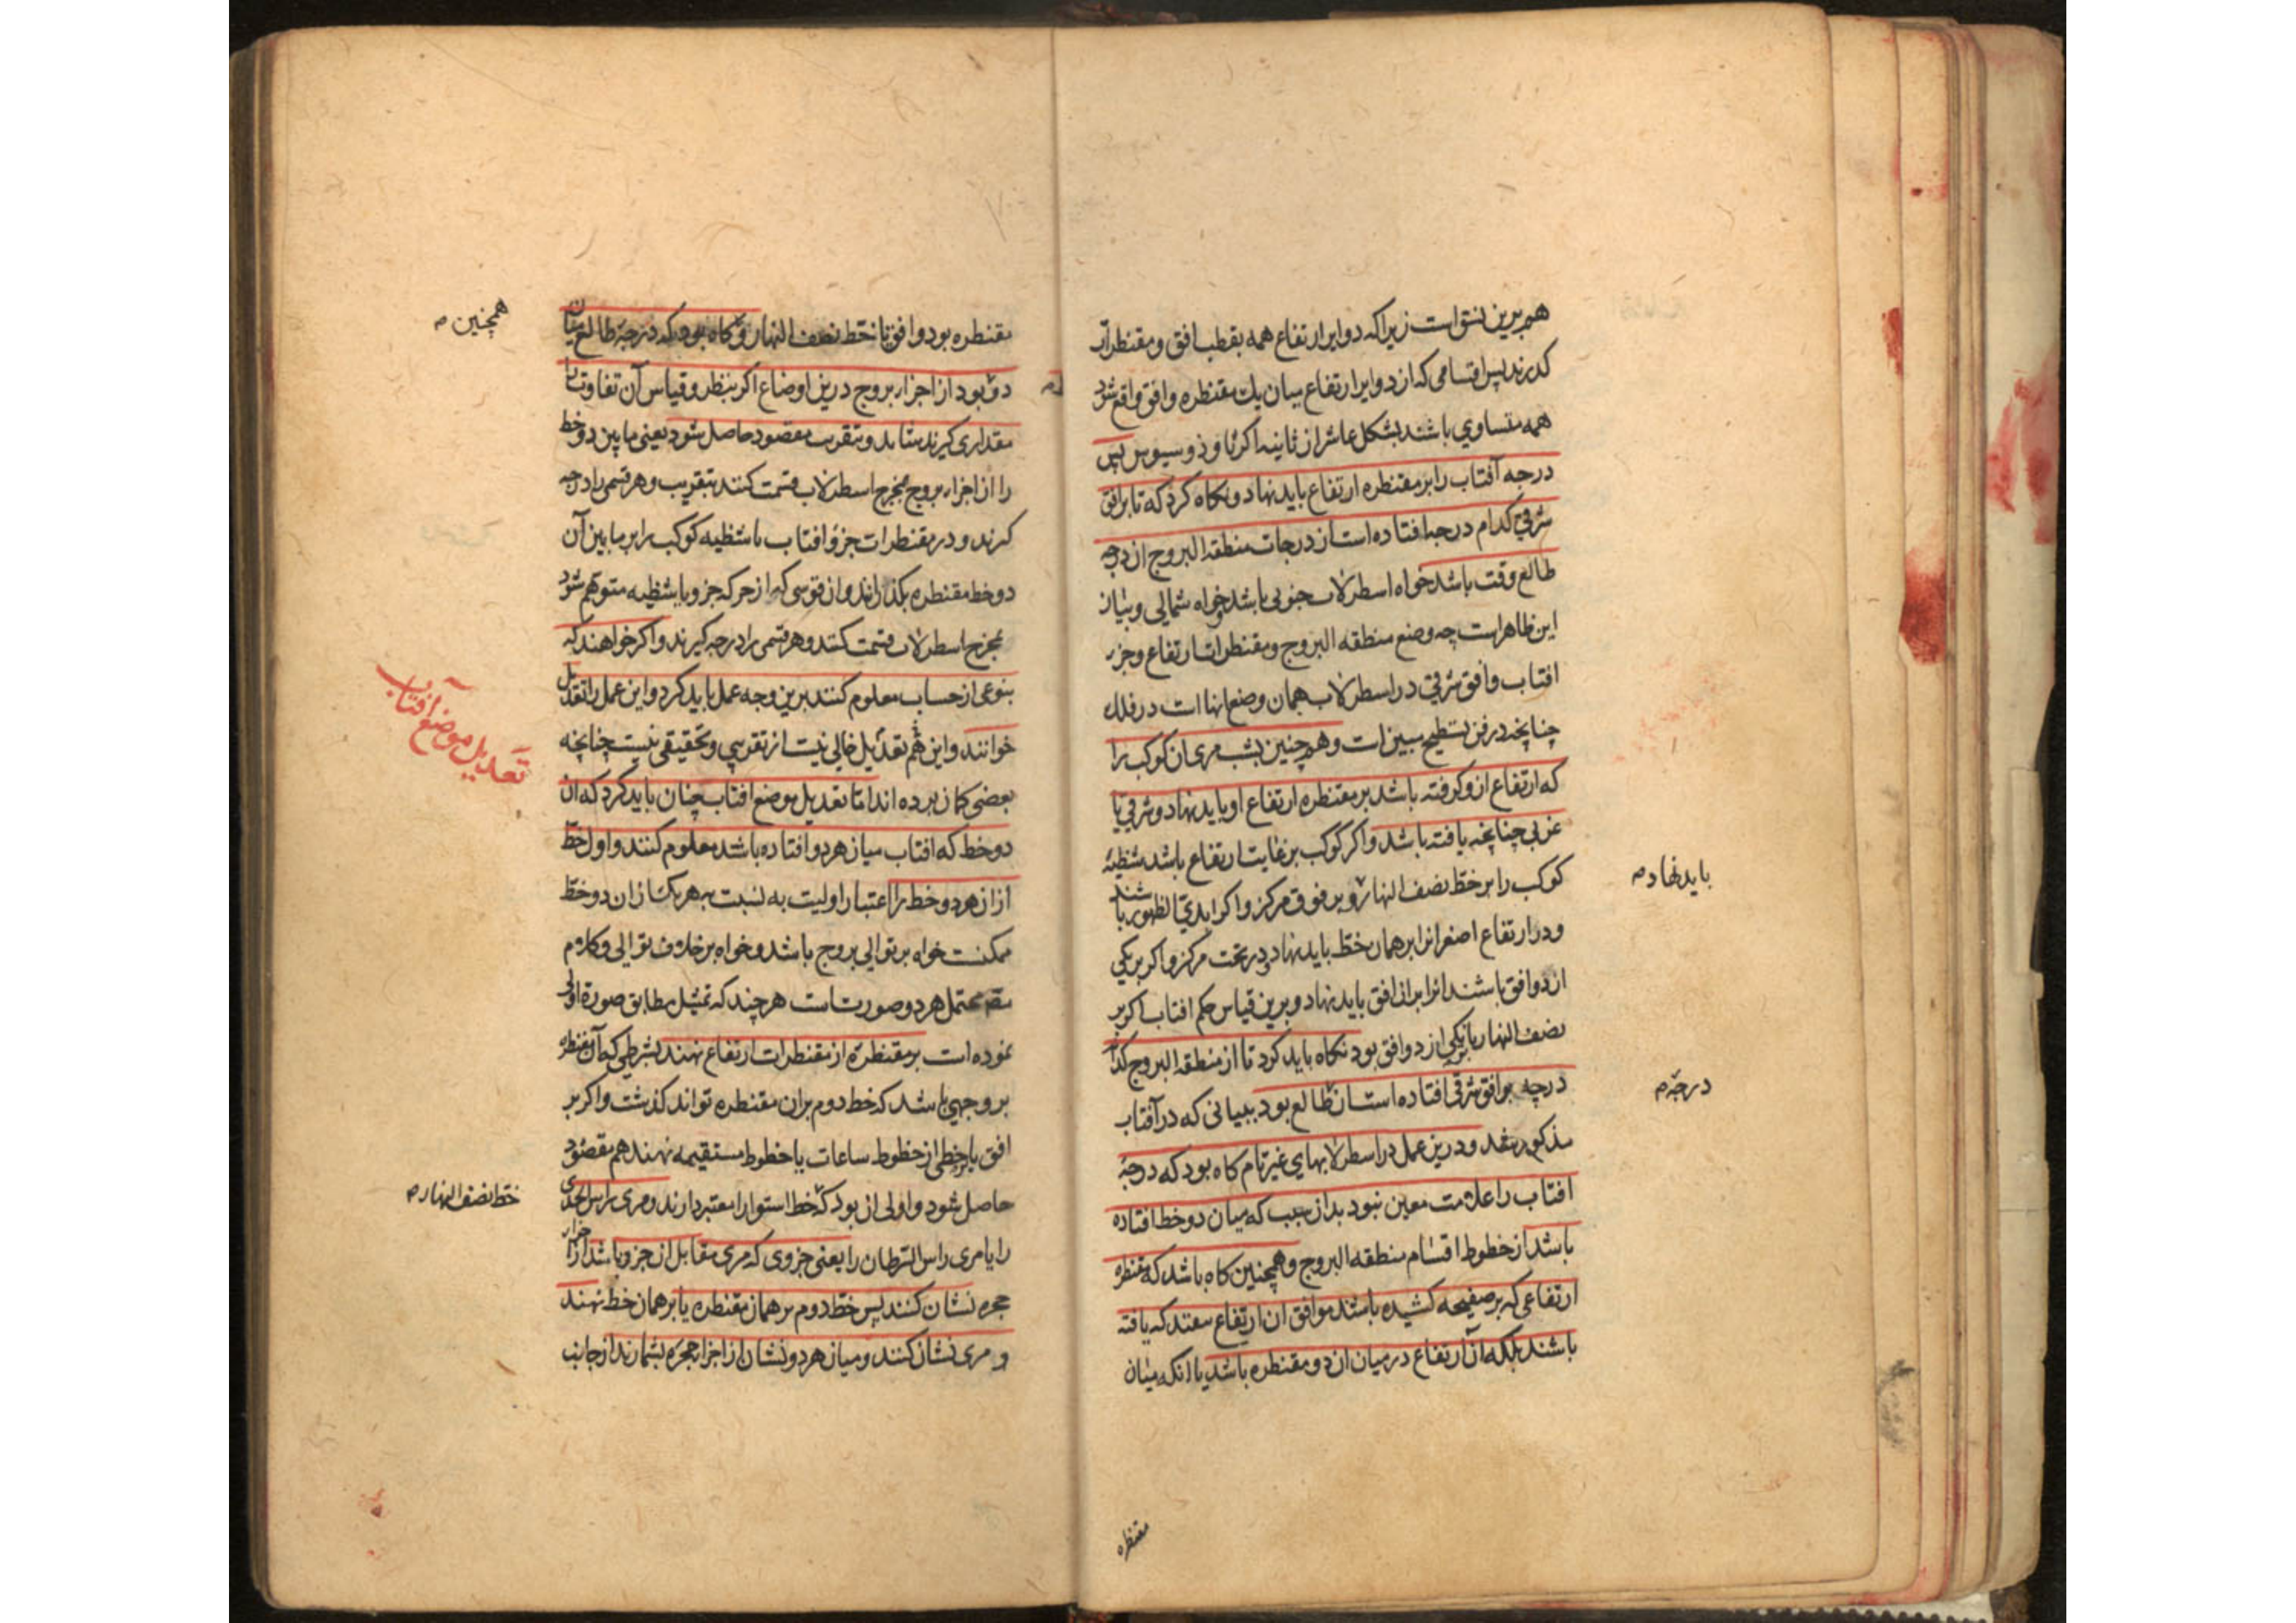 هم برین نسق است زیرا که دوایر ارتفاع همه بقطب افق و مقنطرات
گذرند پس اقسامی که از دوایر ارتفاع میان یک مقنطره و افق واقع شود
همه متساوی باشند بشکل عاشر از ثانیه اکرثاوذوسیوس پس
درجه آفتاب را بر مقنطره ارتفاع باید نهاد و نکاه کرد که تا بر افق
شرقی کدام درجه افتاده است از درجات منطقه البروج ان درجه
طالع وقت باشد خواه اسطرلاب جنوبی باشد خواه شمالی و بیان
این ظاهر است چه وضع منطقه البروج و مقنطرات ارتفاع و جزء
افتاب و افق شرقی در اسطرلاب همان وضع انها است در فلک
چنانچه در فن تسطیح مبین است و هم چنین بشب مری ان کوکب را
که ارتفاع از و کرفته باشد بر مقنطره ارتفاع او باید نهاد و شرقی یا
غربی چنانچه یافته باشد و اکر کوکب بر غایت ارتفاع باشد شظیه
کوکب را بر خط نصف النهار و بر فوق مرکز و اکر ابدی الظهور باشد
باید نهاد م
و در ارتفاع اصغر انرا بر همان خط باید نهاد و در تحت مرکز و اکر بر یکی
از دو افق باشند انرا بر ان افق باید نهاد و برین قیاس حکم افتاب اکر بر
نصف النهار یا بر یکی از دو افق بود نکاه باید کرد تا از منطقه البروج کدام
درجه بر افق شرقی افتاده است ان طالع بود ببیانی که در آفتاب
درجهٔ م
مذکور شد و درین عمل در اسطرلابهای غیر تام کاه بود که درجهٔ
افتاب را علامت معین نبود بدان سبب که میان دو خط افتاده
باشد از خطوط اقسام منطقه البروج و همچنین کاه باشد که مقنطره
ارتفاعی که بر صفیحه کشیده باشند موافق ان ارتفاع نیفتد که یافته
باشند بلکه آن ارتفاع در میان ان دو مقنطره باشد یا انکه میان
مقنطره
مقنطره بود و افق یا خط نصف النهار و کاه بود که درجهٔ طالع میان
همچنین م
دو بود از اجزاء بروج درین اوضاع اکر بنظر و قیاس آن تفاوت را
مقداری کیرند شاید و بتقریب مقصود حاصل شود یعنی ما بین دو خط
را از اجزاء بروج بمخرج اسطرلاب قسمت کنند بتقریب و هر قسمی را درجه
کیرند و در مقنطرات جزو افتاب یا شظیه کوکب را بر ما بین آن
دو خط مقنطره بکذرانند و ان قوسی که از حرکه جزو یا بشظیه متوهم شود
بمخرج اسطرلاب قسمت کنند و هر قسمی را درجه کیرند و اکر خواهند که
بنوعی از حساب معلوم کنند برین وجه عمل باید کرد و این عمل را تعدیل
تعدیل موضع آفتاب
خوانند و این هم تعدیل خالی نیست از تقریبی و تحقیقی نیست چنانچه
بعضی کمان برده اند اما تعدیل موضع افتاب چنان باید کرد که ان
دو خط که افتاب میان هر دو افتاده باشد معلوم کنند و اول خط
از ان هر دو خط را اعتبار اولیت به نسبت بهر یک از ان دو خط
ممکنست خواه بر توالی بروج باشد و خواه بر خلاف توالی و کلام
مصـ محتمل هر دو صورت است هر چند که تمثیل مطابق صورة اولی
نموده است بر مقنطرهٔ از مقنطرات ارتفاع نهند بشرطی که آن مقنطره
بر وجهی باشد که خط دوم بران مقنطره تواند کذشت و اکر بر
افق یا بر خطی از خطوط ساعات یا خطوط مستقیمه نهند هم مقصود
حاصل شود و اولی ان بود که خط استوا را معتبر دارند و مری راس الجدی
خط نصف النهار م
را یا مری راس السرطان را یعنی جزوی که مری مقابل ان جزو باشد از اجزاء
حجره نشان کنند پس خط دوم بر همان مقنطره یا بر همان خط نهند
و مری نشان کنند و میان هر دو نشان از اجزاء حجره بشمارند از جانب